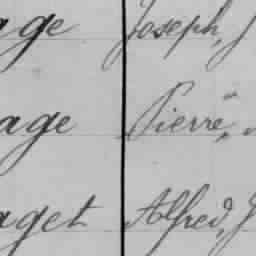 age Joseph, J
age Pierre,
aget Alfred, J